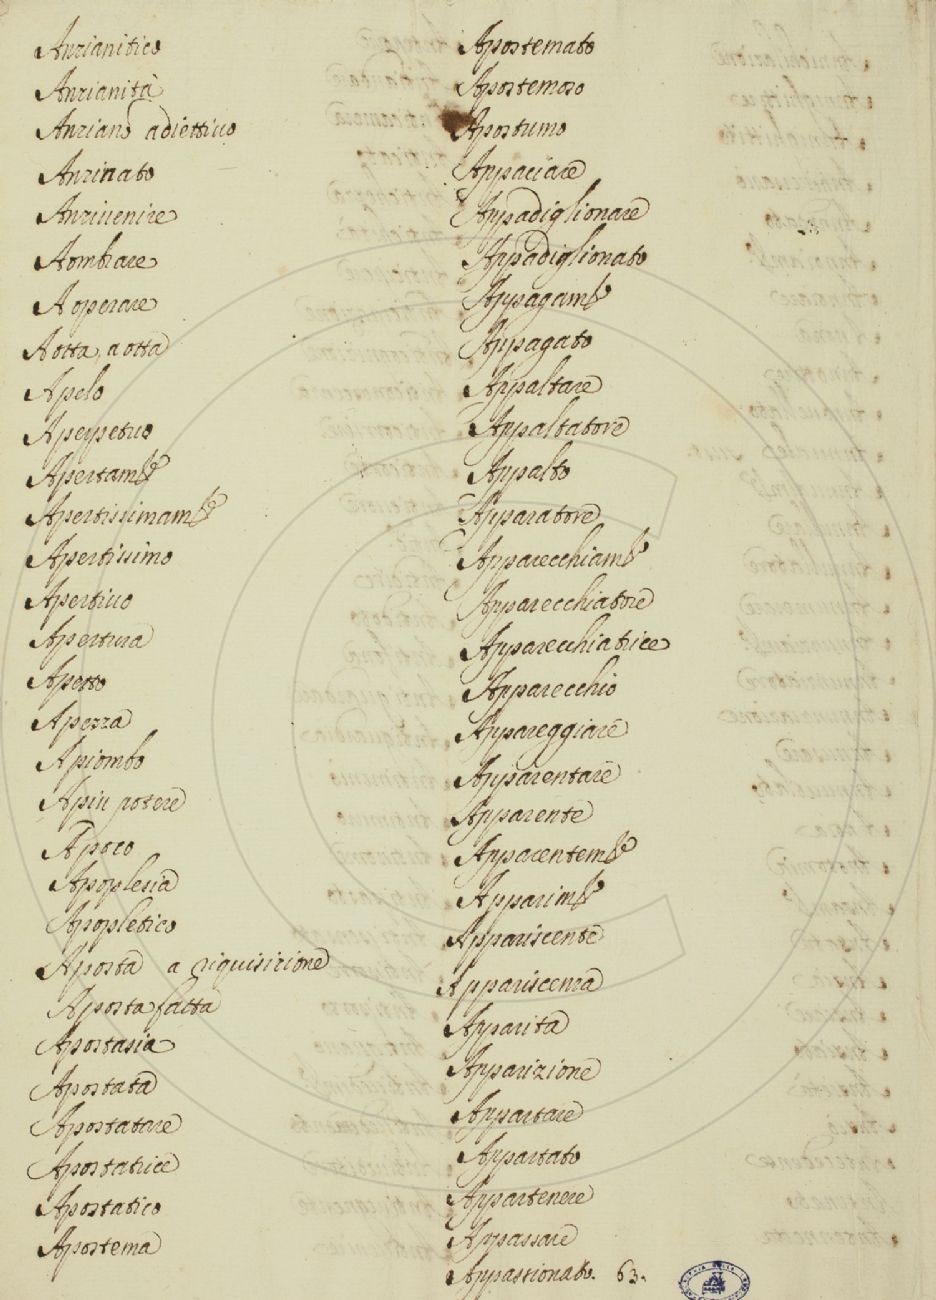 Anzianitico
Anzianità
Anziano adiettivo
Anzinato
Anzivenire
Aombrare
A operare
A otta, a otta
Apelo
Aperpetuo
Apertam.te
Apertissimam.te
Apertissimo
Apertivo
Apertura
Apetto
Apezza
Apiombo
Apiu potere
A poco
Apoplesia
Apopletico
Aposta a riquisizione
Aposta fatta
Apostasia
Apostata
Apostatare
Apostatrice
Apostatico
Apostema
Apostemato
Apostemoso
Apostumo
Appaciare
Appadiglionare
Appadiglionato
Appagam.to
Appagato
Appaltare
Appaltatore
Appalto
Apparatore
Apparecchiam.to
Apparecchiatore
Apparecchiatrice
Apparecchio
Appareggiare
Apparentare
Apparente
Apparentem.te
Apparim.to
Appariscente
Appariscenza
Apparita
Apparizione
Appartare
Appartato
Appartenere
Appassare
Appassionato. 63.